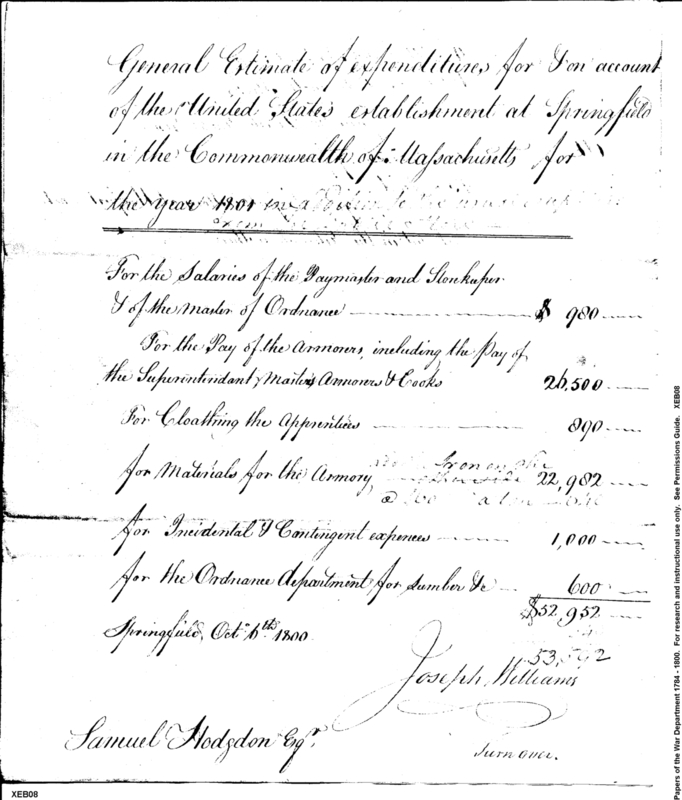 General Estimate of expenditures for & on account
of the United States establishment at Springfield
in the Commonwealth of Massachusetts for
the year 1801 in addition to the
For the Salaries of the Paymaster and Storekeeper
& of the Master of Ordnance $ 980
For the Pay of the Armorers, including the Pay of
the Superintendant, Master Armorers & Cooks 26,500
For Cloathing the Apprentices 890
for Materials for the Armory, 22,982
Iron on the
for Incidental & Contingent expences 1,000
for the Ordnance department for Lumber &c 600
$52,952
Springfield, Octr. 6th 1800
Joseph Williams
Samuel Hodgdon Esqr.
turn over.
XEB08
Papers of the War Department 1784 - 1800. For research and instructional use only. See Permissions Guide. XEB08